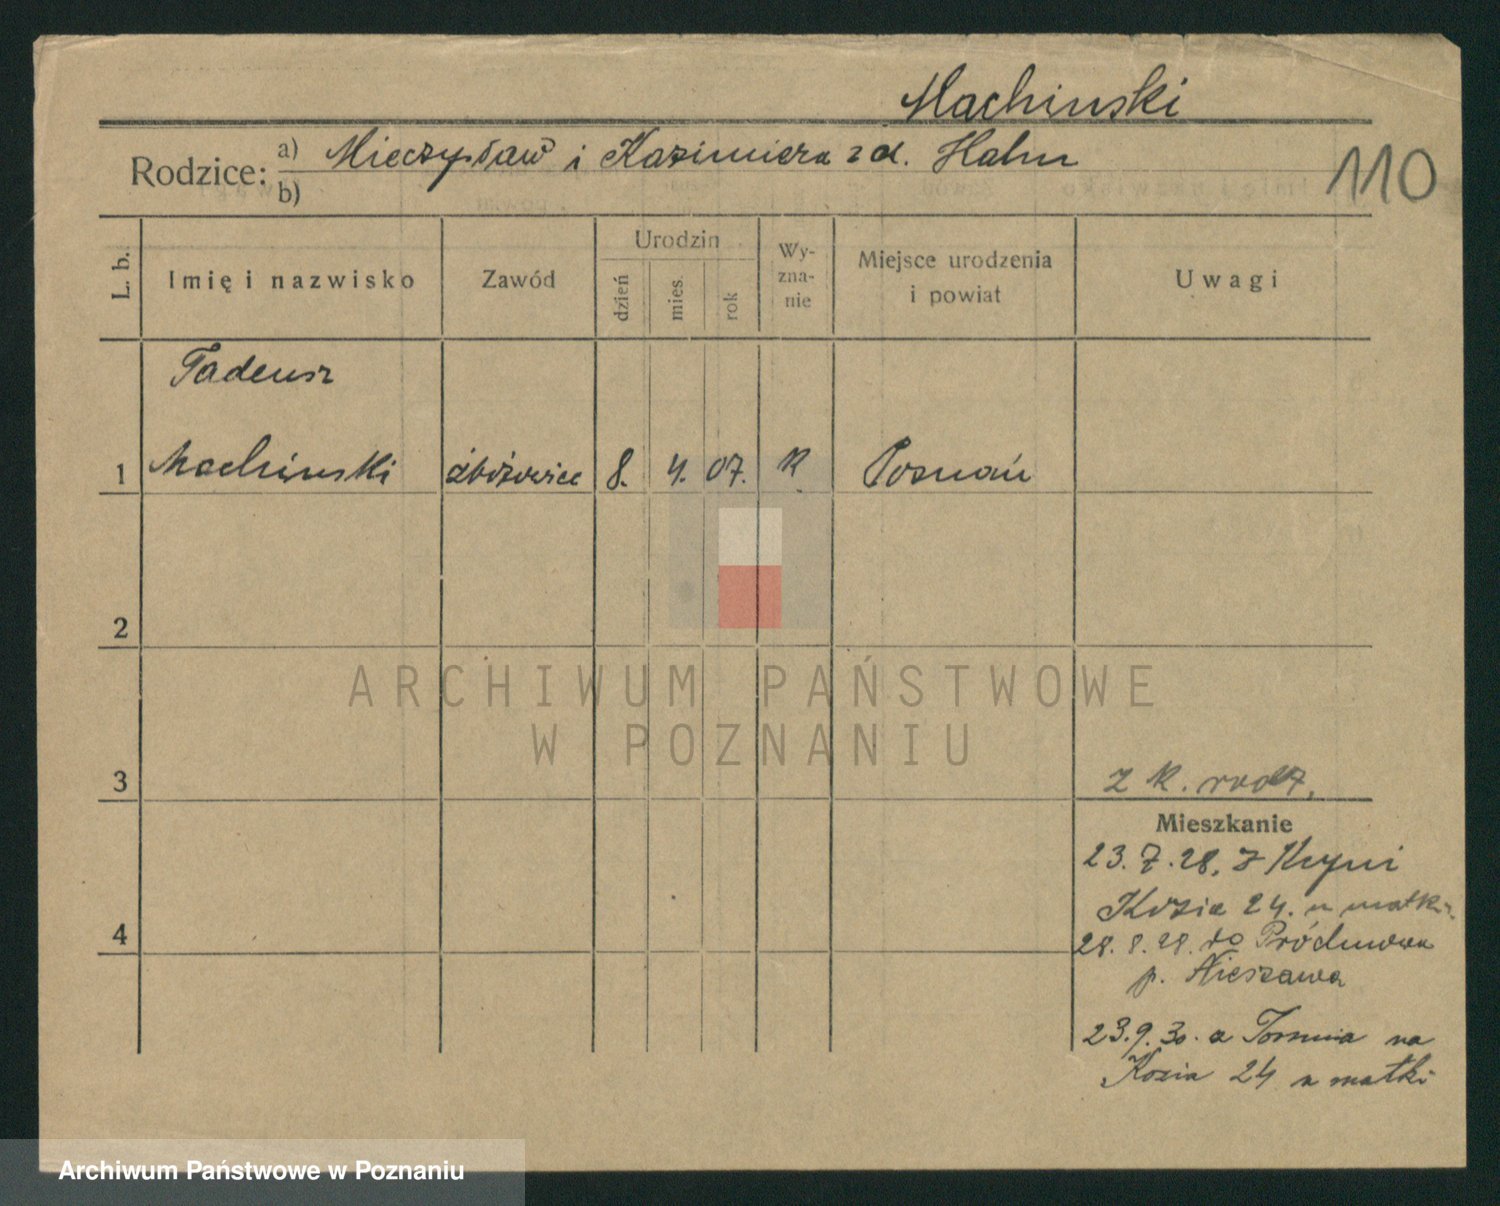 Machinski
Rodzice: a) Mieczysław i Kazimiera zd. Hahn
b)
110
L. b. Imię i nazwisko Zawód Urodzin dzień mies. rok Wy-zna-nie Miejsce urodzenia i powiat Uwagi
Tadeusz
1 Machinski zbożowiec 8. 4. 07. K Poznań
2
ARCHIWUM PAŃSTWOWE
W POZNANIU
3
z k. rodz.
Mieszkanie
23.7.28. z Kcyni
Kozia 24. u matki.
4
28.8.28. do
p. Nieszawa
23.9.30. z Torunia na
Kozia 24 u matki
Archiwum Państwowe w Poznaniu